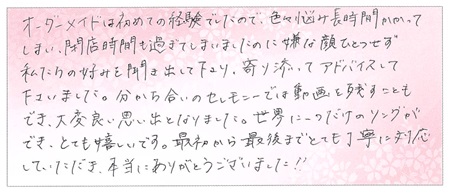 オーダーメイドは初めての経験でしたので、色々悩み長時間かかって
しまい、閉店時間も過ぎてしまいましたのに嫌な顔ひとつせず
私たちの好みを聞き出して下さり、寄り添ってアドバイスして
下さいました。分かち合いのセレモニーでは動画を残すことも
でき、大変良い思い出となりました。世界に一つだけのリングが
でき、とても嬉しいです。最初から最後までとても丁寧に対応
していただき、本当にありがとうございました!!